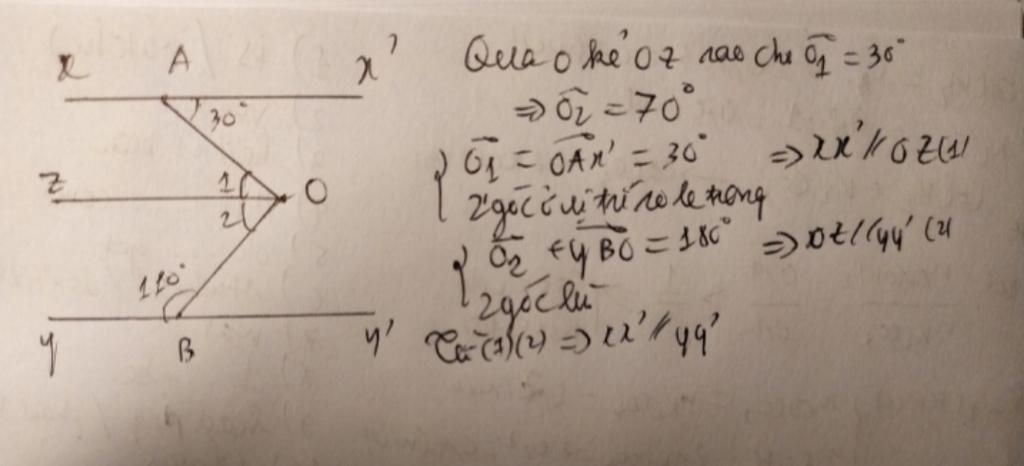 x A x'
30°
z 1 O
2
110°
y B y'
Qua O kẻ Oz sao cho Ô1 = 30°
⇒ Ô2 = 70°
Ô1 = OAx' = 30° ⇒ xx' // Oz (1)
2 góc ở vị trí so le trong
Ô2 + yBO = 180° ⇒ Oz // yy' (2)
2 góc
Từ (1)(2) ⇒ xx' // yy'